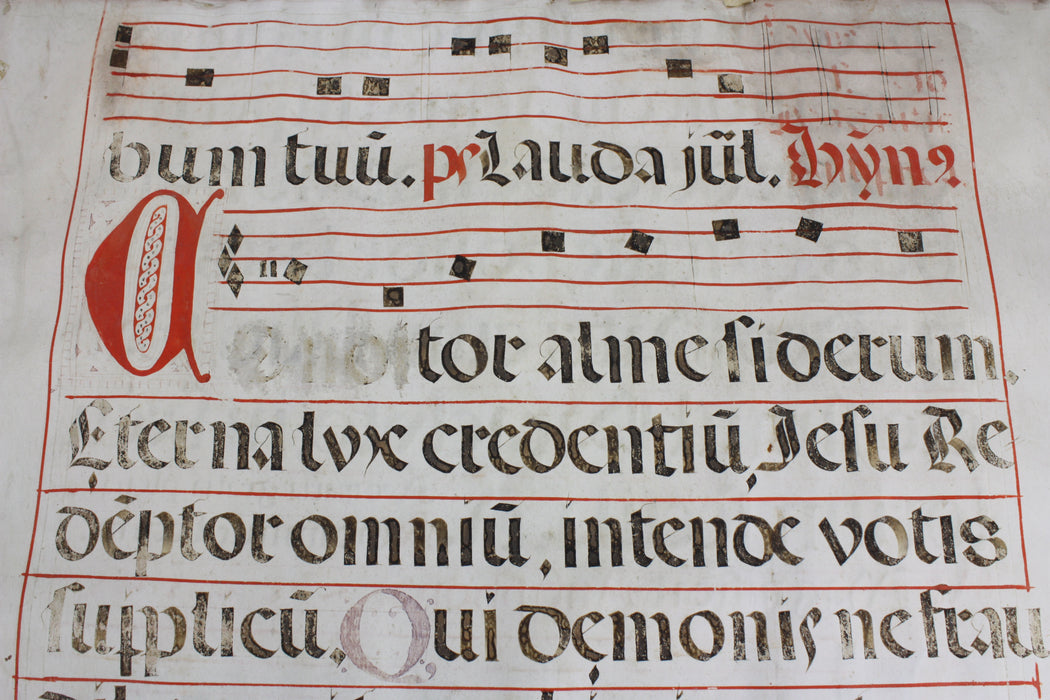 bum tuū. ps Lauda jūl. Hȳnꝰ
Conditor alme siderum,
Ęterna lvx credentiū, Jesu Re
dēptor omniū, intende votis
supplicū. Qui dęmonis ne frau